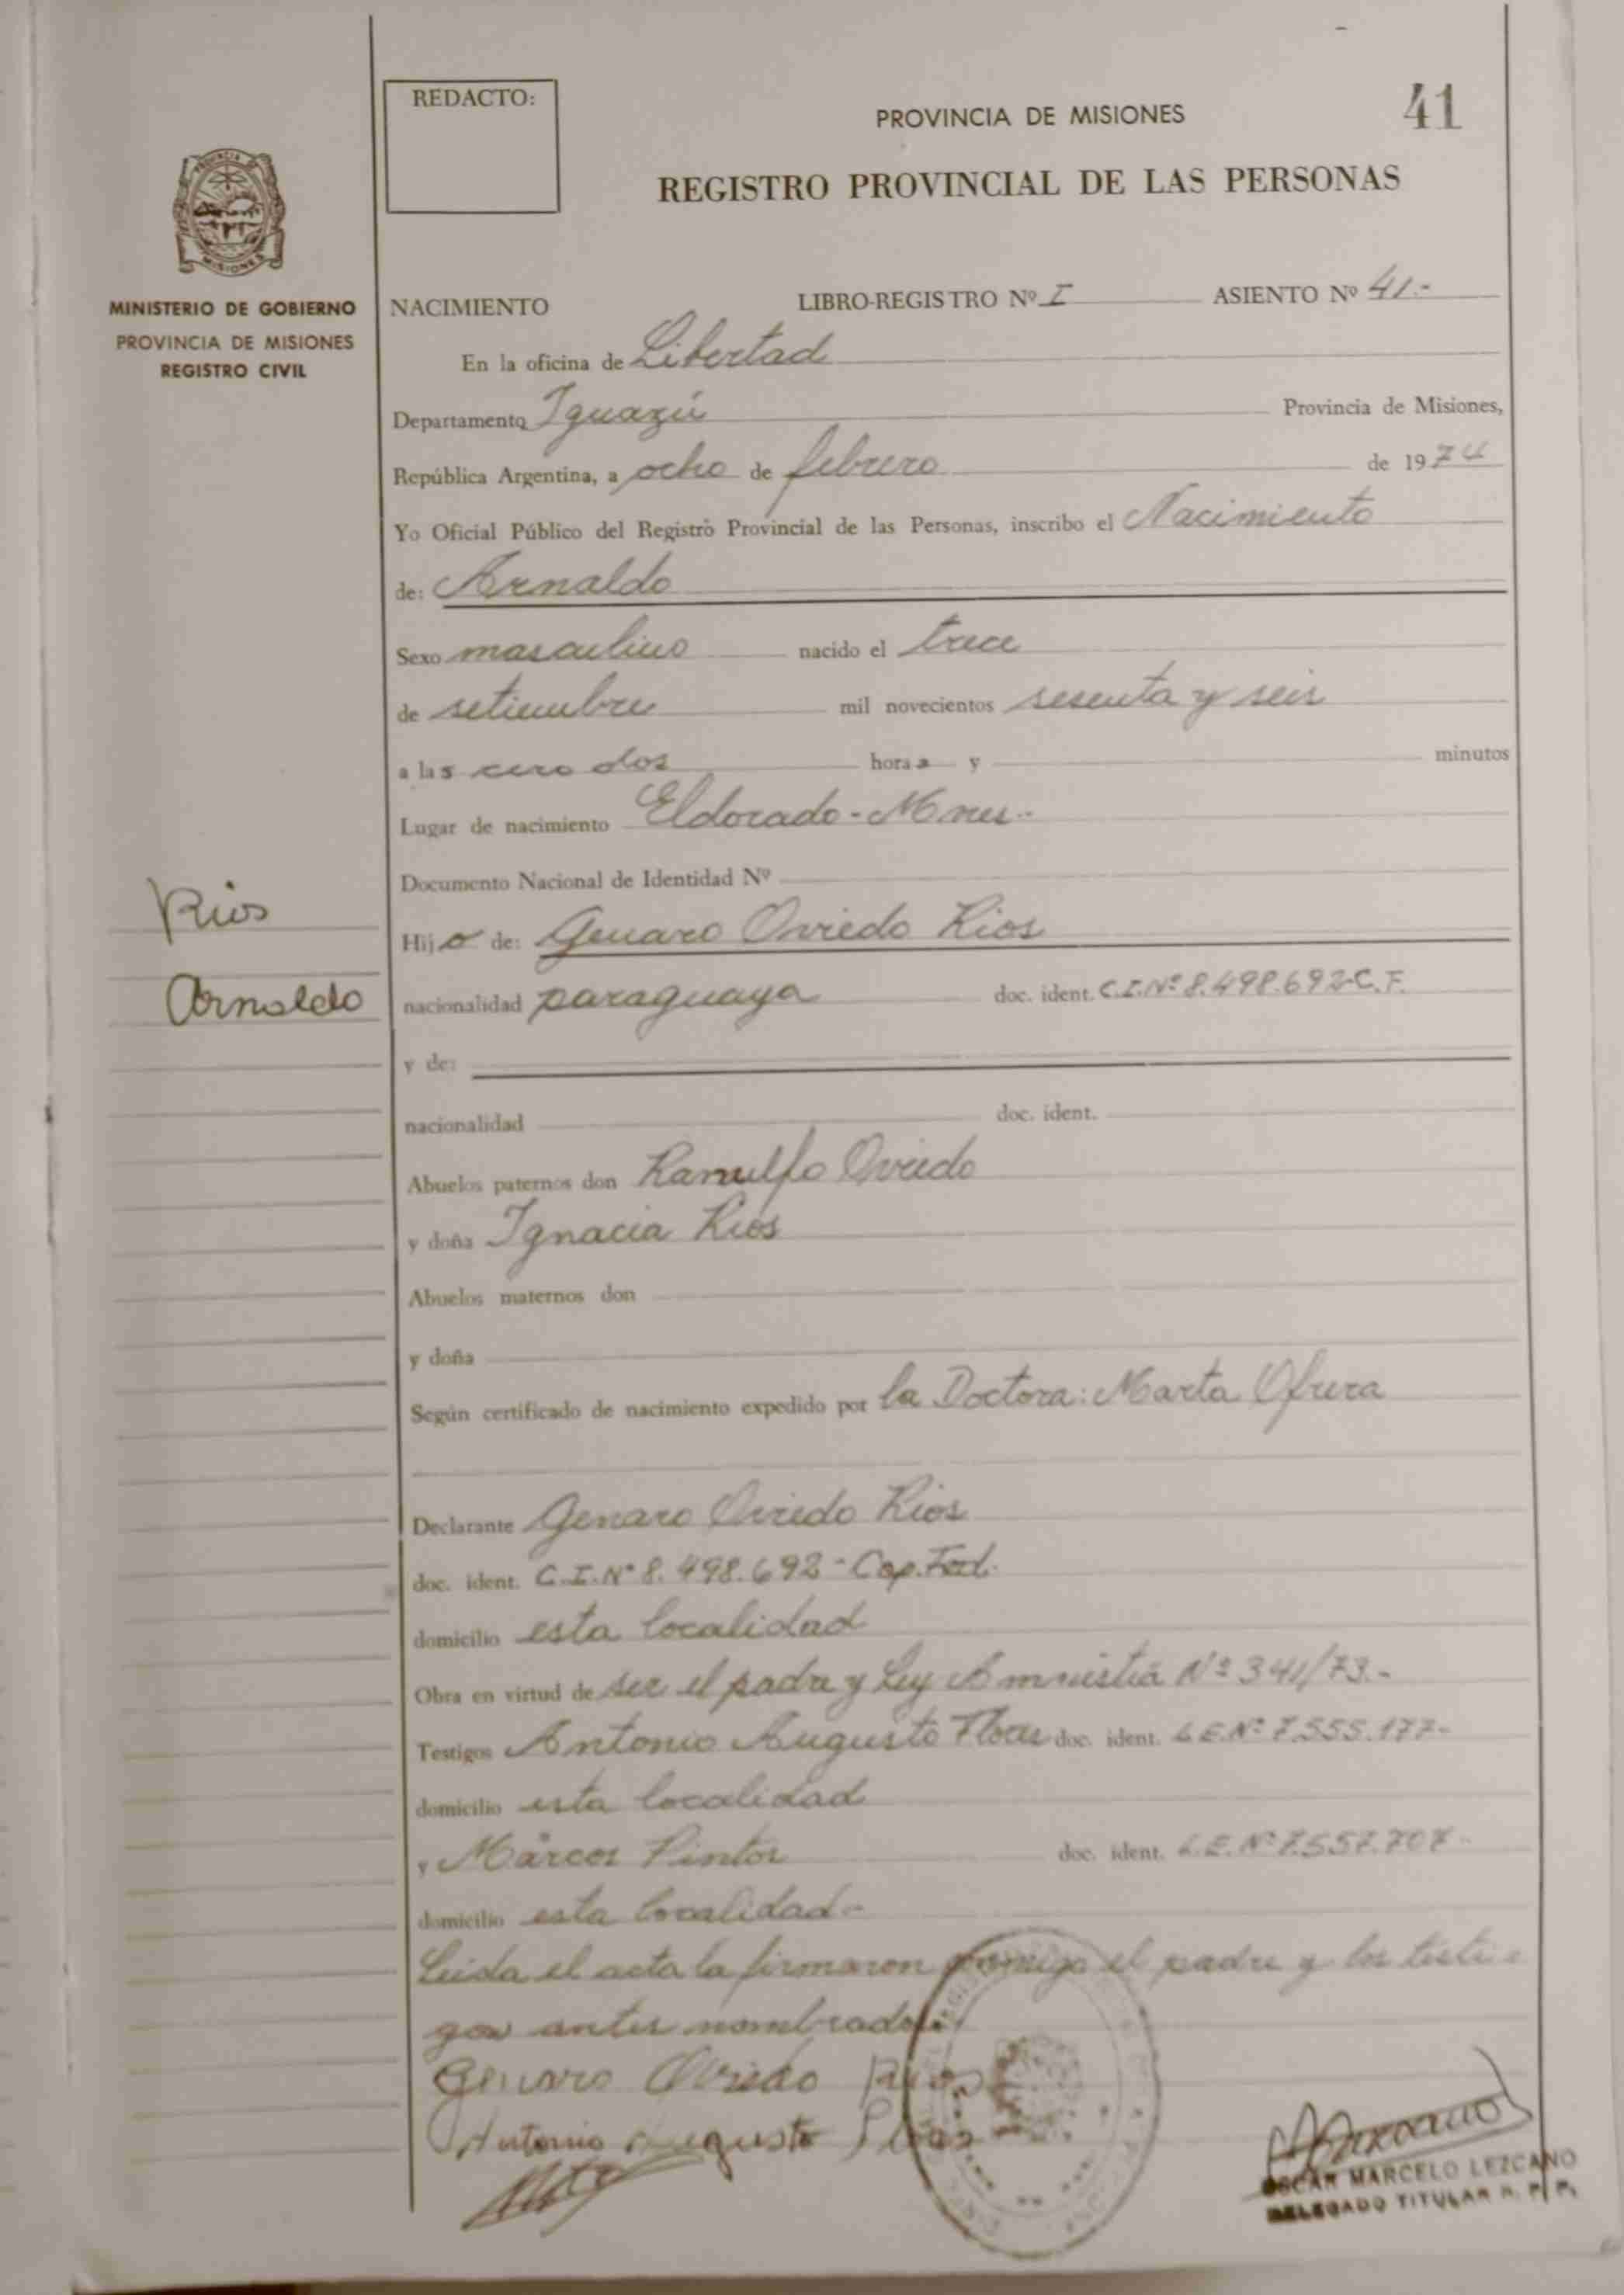 REDACTO:
PROVINCIA DE MISIONES
41
REGISTRO PROVINCIAL DE LAS PERSONAS
PROVINCIA DE
MISIONES
MINISTERIO DE GOBIERNO
PROVINCIA DE MISIONES
REGISTRO CIVIL
NACIMIENTO LIBRO-REGISTRO Nº I ASIENTO Nº 41.-
En la oficina de Libertad
Departamento Iguazú Provincia de Misiones,
República Argentina, a ocho de febrero de 1974
Yo Oficial Público del Registro Provincial de las Personas, inscribo el Nacimiento
de: Arnaldo
Sexo masculino nacido el trece
de setiembre mil novecientos sesenta y seis
a las cero dos horas y minutos
Lugar de nacimiento Eldorado - Mnes.-
Documento Nacional de Identidad Nº
Rios
Hijo de: Genaro Oviedo Rios
Arnaldo
nacionalidad paraguaya doc. ident. C.I.Nº 8.498.692-C.F.
y de:
nacionalidad doc. ident.
Abuelos paternos don Ranulfo Oviedo
y doña Ignacia Rios
Abuelos maternos don
y doña
Según certificado de nacimiento expedido por la Doctora: Marta
Declarante Genaro Oviedo Rios
doc. ident. C.I.Nº 8.498.692 - Cap. Fed.
domicilio esta localidad
Obra en virtud de ser el padre y Ley Amnistia Nº 341/73.-
Testigos Antonio Augusto Flores doc. ident. L.E.Nº 7.555.177-
domicilio esta localidad
y Marcos Pintos doc. ident. L.E.Nº 7.557.707-
domicilio esta localidad-
Leida el acta la firmaron conmigo el padre y los testi-
gos antes nombrados.
Genaro Oviedo Rios
Antonio Augusto Flores
OSCAR MARCELO LEZCANO
DELEGADO TITULAR R. P. P.